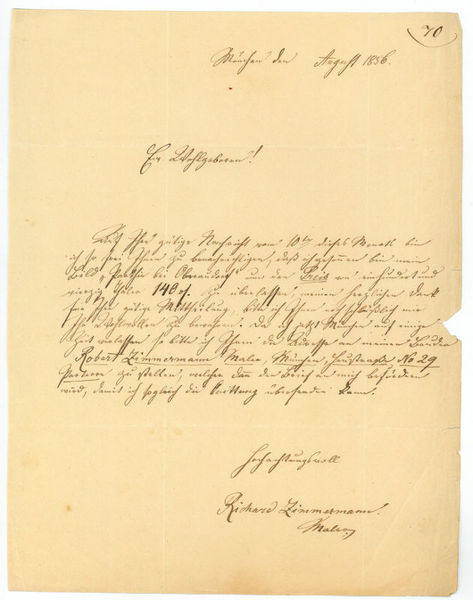 70
München den August 1856.
Ew. Wohlgeboren!
Auf Ihre gütige Nachricht vom 10ten dieses Monats bin
ich so frei Ihnen zu benachrichtigen, daß ich gesonnen bin mein
Bild „ bei Oberaudorf" um den Preis von einhundert und
vierzig Thaler 140 zu überlassen, meinen herzlichen Dank
für Ihre gütige Mittheilung, bitte ich Ihnen mir
Ihr Wohlwollen zu bewahren. Da ich jetzt München auf einige
Zeit verlasse so bitte ich Ihnen die Adresse an meinen Bruder
Robert Zimmermann Maler, München, No 29
Parterre zu stellen, welcher dann den Brief an mich befördern
wird, damit ich sogleich die Quittung übersenden kann.
Hochachtungsvoll
Richard Zimmermann.
Maler